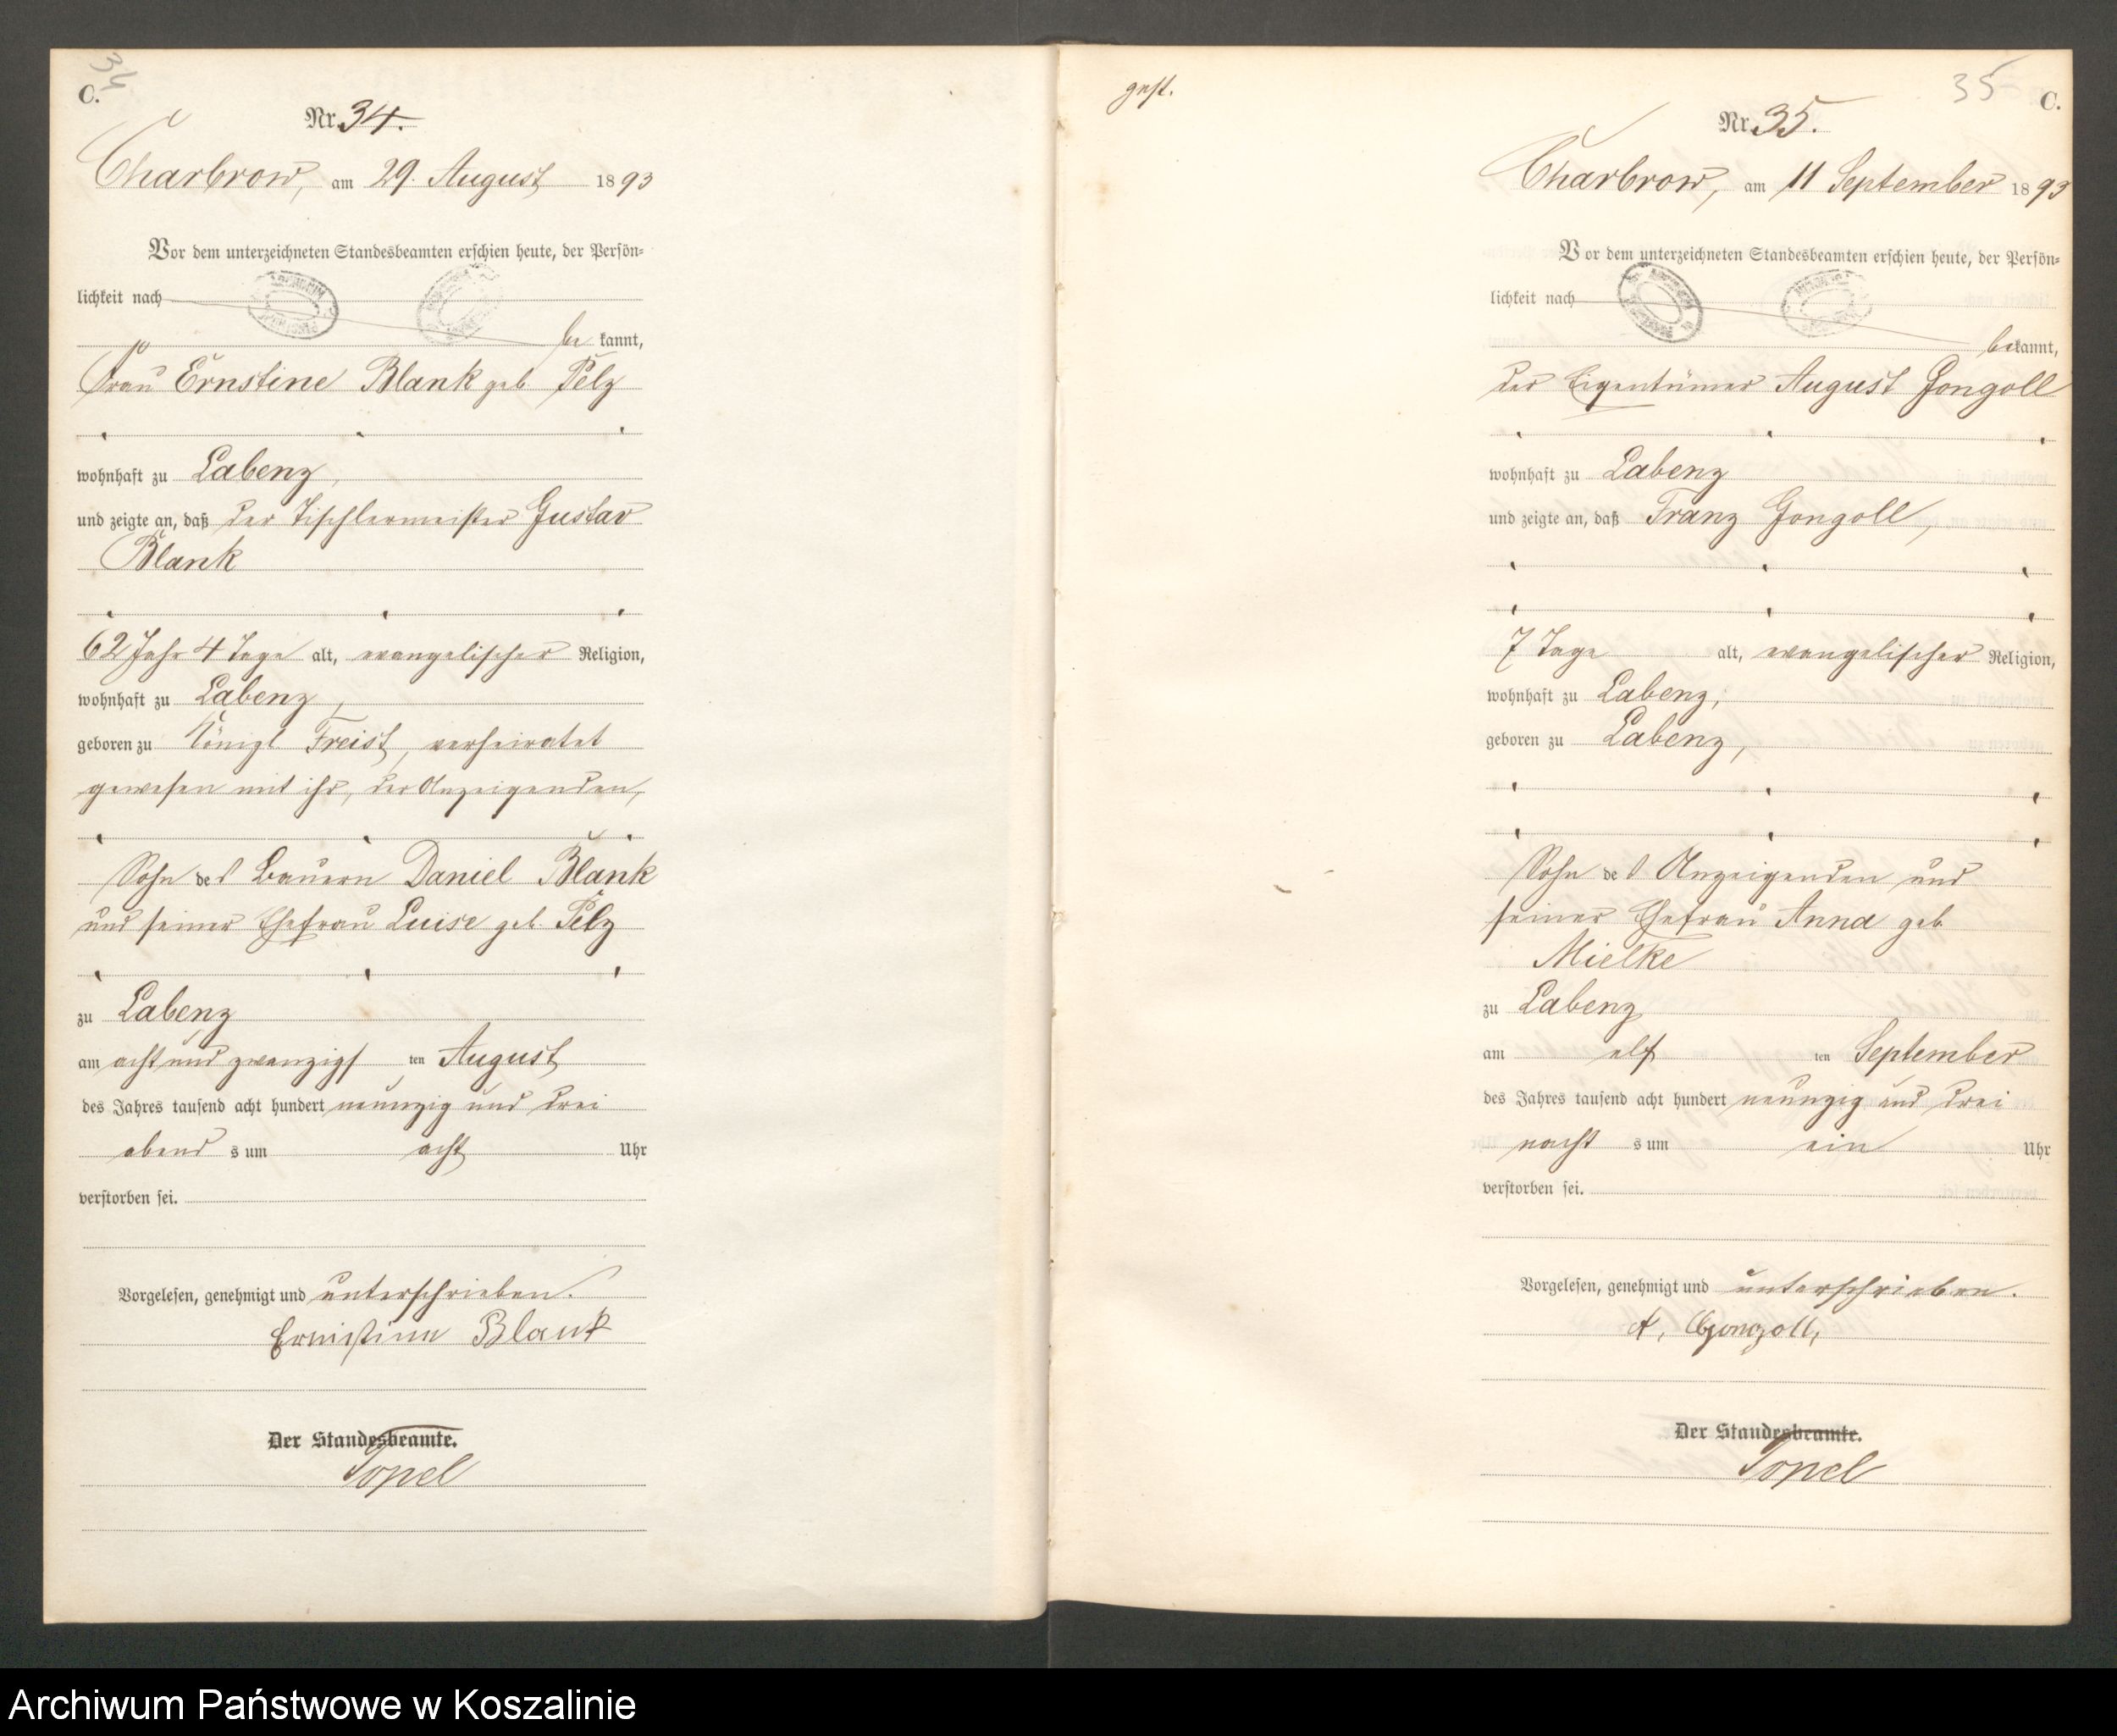 34
C.
Nr. 34.
Charbrow, am 29. August 1893
Vor dem unterzeichneten Standesbeamten erschien heute, der Persön-
lichkeit nach
be kannt,
Frau Ernstine Blank geb. Pelz
wohnhaft zu Labenz,
und zeigte an, daß der Tischlermeister Gustav
Blank
62 Jahr 4 Tage alt, evangelischer Religion,
wohnhaft zu Labenz,
geboren zu Königl Freist, verheiratet
gewesen mit ihr, der Anzeigenden,
Sohn des Bauern Daniel Blank
und seiner Ehefrau Luise geb. Pelz
zu Labenz
am acht und zwanzigs ten August
des Jahres tausend acht hundert neunzig und drei
abend s um acht Uhr
verstorben sei.
Vorgelesen, genehmigt und unterschrieben.
Ernistine Blank
Der Standesbeamte.
Topel
gest.
35
C.
Nr. 35.
Charbrow, am 11 September 1893
Vor dem unterzeichneten Standesbeamten erschien heute, der Persön-
lichkeit nach
bekannt,
der Eigentümer August Gongoll
wohnhaft zu Labenz
und zeigte an, daß Franz Gongoll,
7 Tage alt, evangelischer Religion,
wohnhaft zu Labenz,
geboren zu Labenz,
Sohn des Anzeigenden und
seiner Ehefrau Anna geb.
Mielke
zu Labenz
am elf ten September
des Jahres tausend acht hundert neunzig und drei
nacht s um ein Uhr
verstorben sei.
Vorgelesen, genehmigt und unterschrieben.
A. Gongoll,
Der Standesbeamte.
Topel
Archiwum Państwowe w Koszalinie